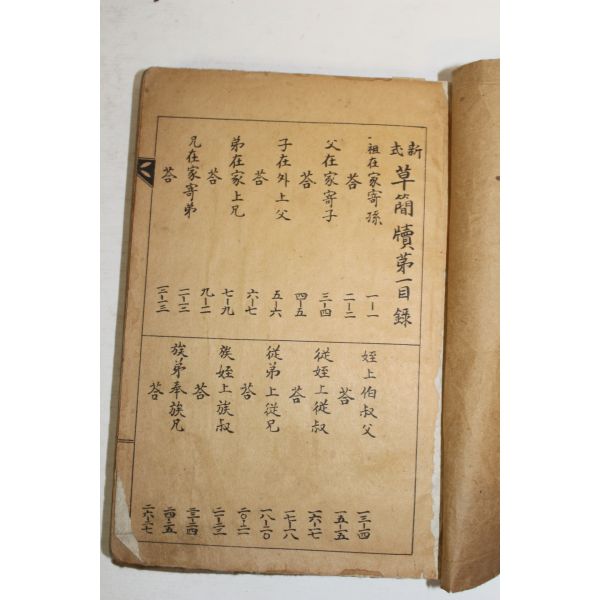 新式草簡牘第一目錄
祖在家寄孫 一-一
答 二-二
父在家寄子 三-四
答 四-五
子在外上父 五-六
答 六-七
弟在家上兄 七-九
答
兄在家寄弟
答
姪上伯叔父 一三-一四
答 一五-一五
從姪上從叔 一六-一七
答 一七-一八
從弟上從兄 一八-二〇
答 二〇-二一
族姪上族叔
答
族弟奉族兄
答 二六-二七